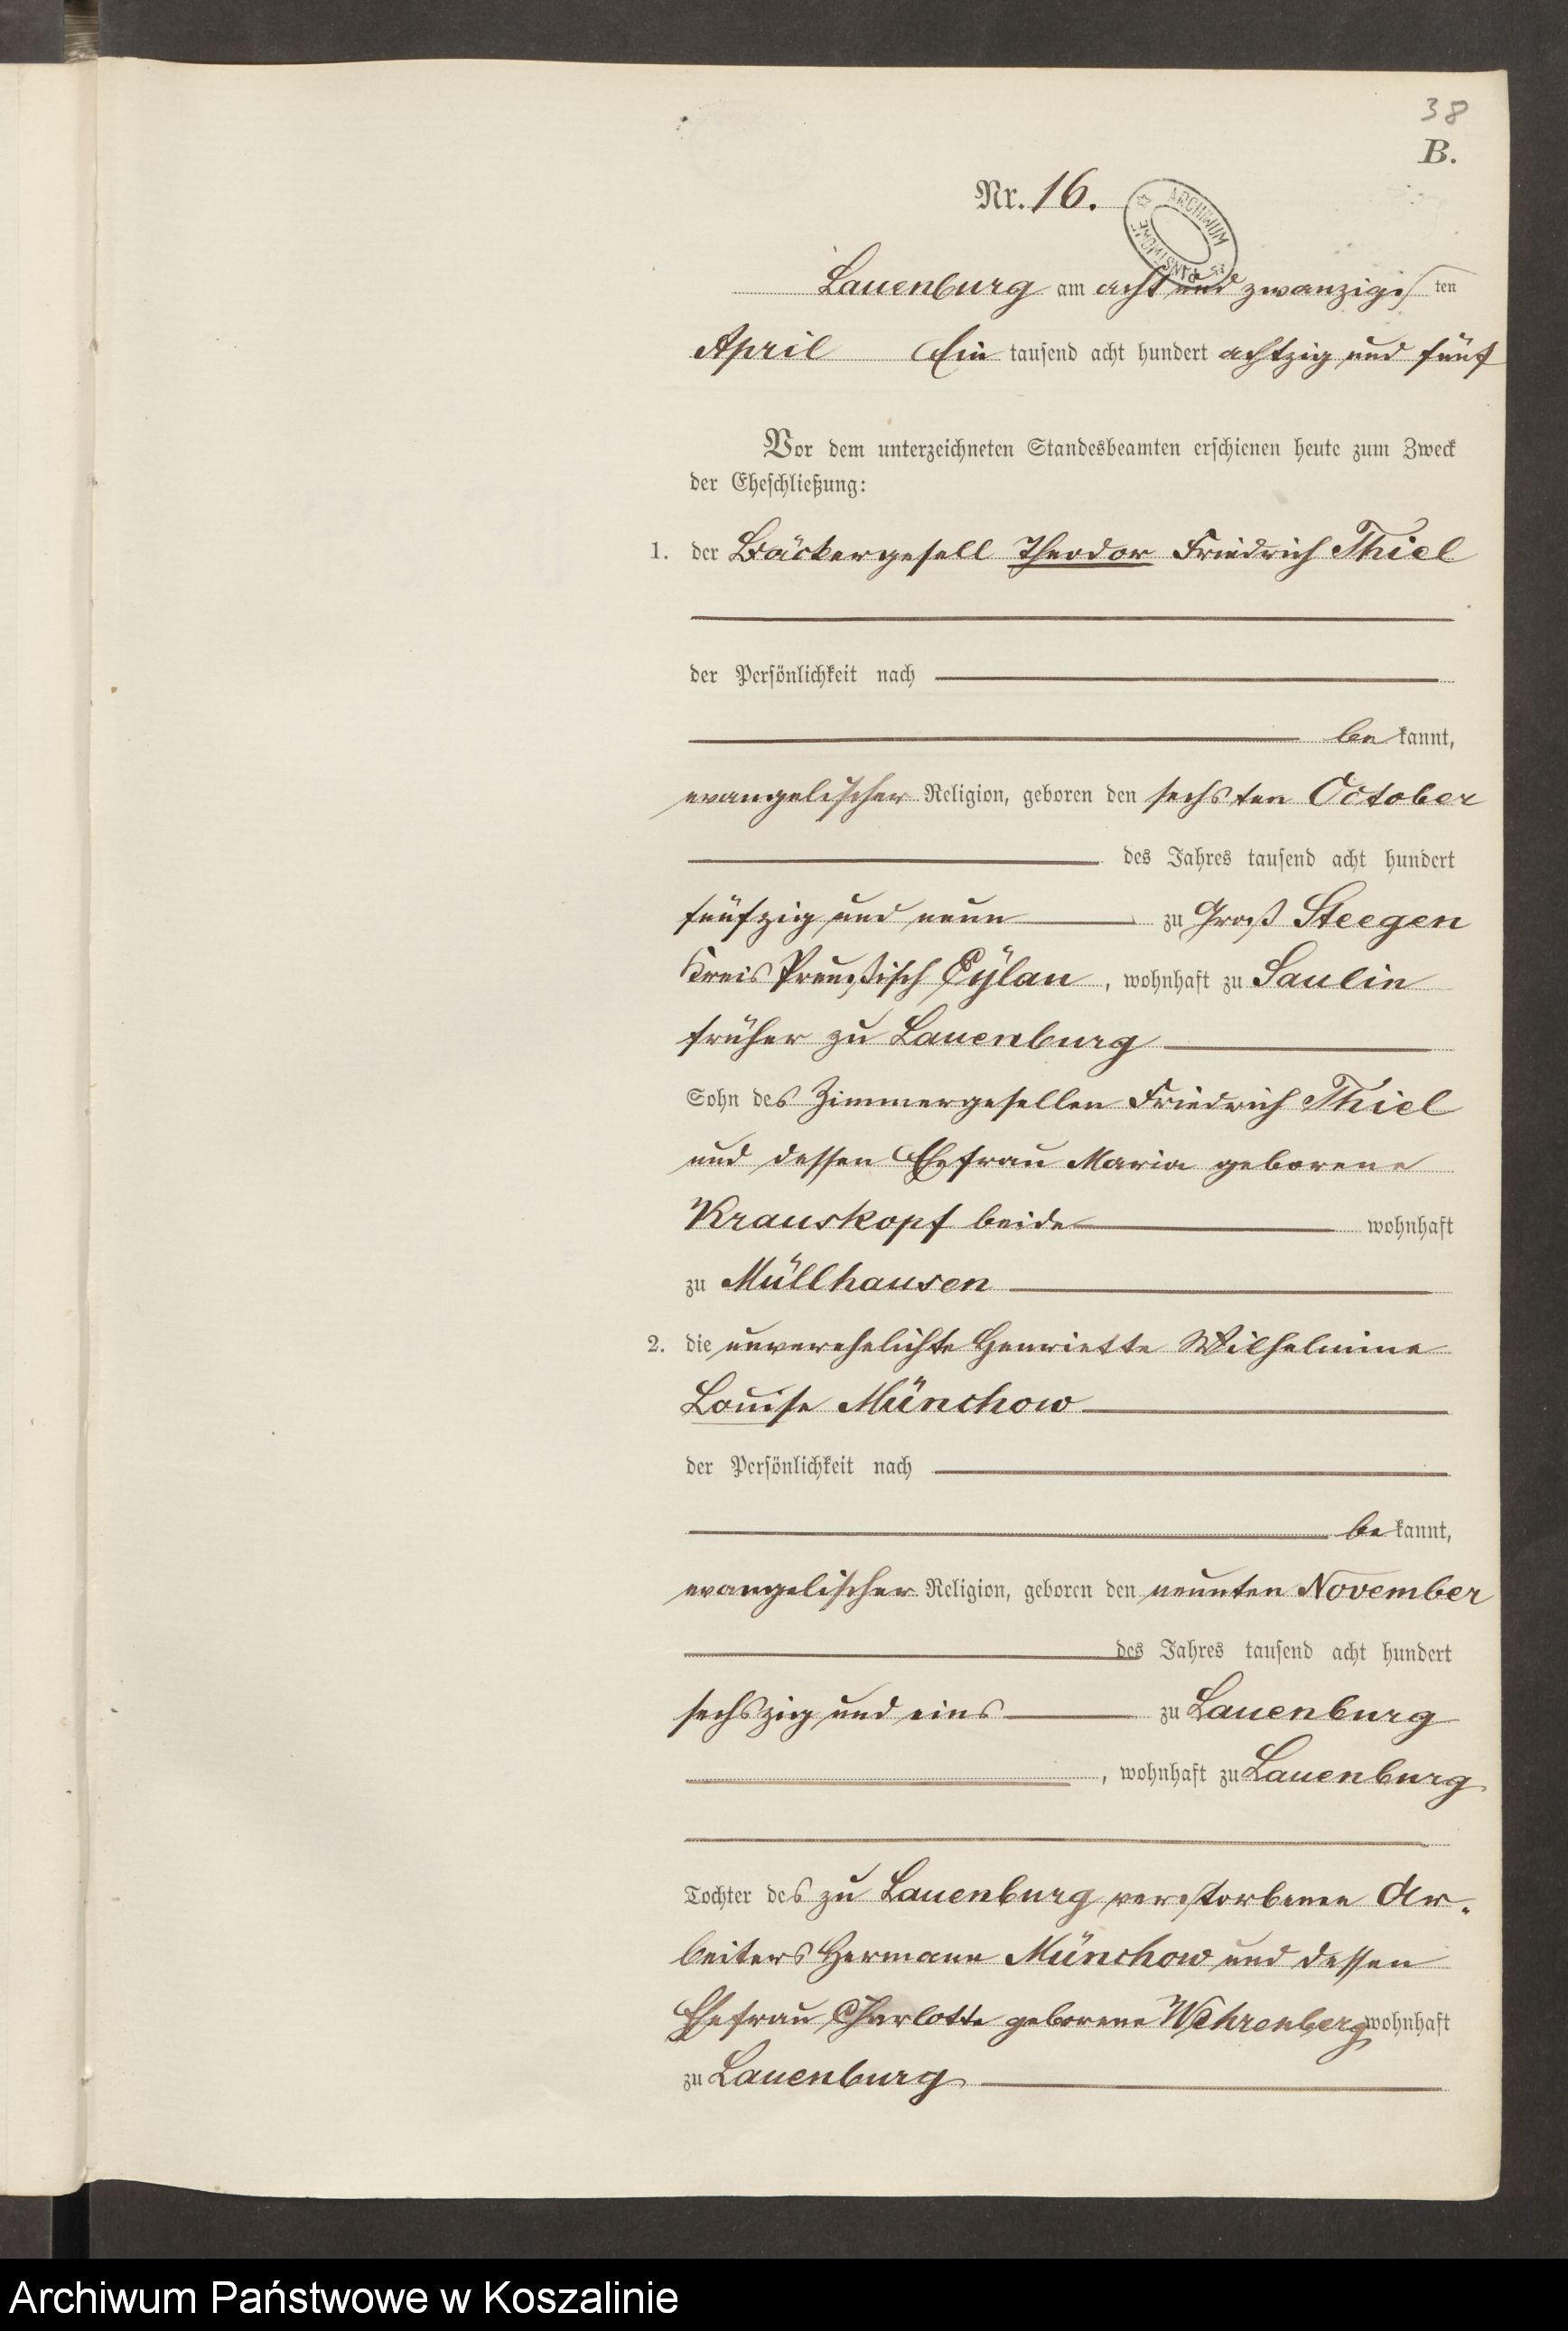 38
B.
Nr. 16.
ARCHIWUM PAŃSTWOWE
Lauenburg am acht und zwanzigsten
April Ein tausend acht hundert achtzig und fünf
Vor dem unterzeichneten Standesbeamten erschienen heute zum Zweck
der Eheschließung:
1. der Bäckergesell Theodor Friedrich Thiel
der Persönlichkeit nach
be kannt,
evangelischer Religion, geboren den sechsten October
des Jahres tausend acht hundert
fünfzig und neun zu Groß Steegen
Kreis Preußisch Eylau, wohnhaft zu Saulin
früher zu Lauenburg
Sohn des Zimmergesellen Friedrich Thiel
und dessen Ehefrau Maria geborene
Krauskopf beide wohnhaft
zu Müllhausen
2. die unverehelichte Henriette Wilhelmine
Louise Münchow
der Persönlichkeit nach
be kannt,
evangelischer Religion, geboren den neunten November
des Jahres tausend acht hundert
sechszig und eins zu Lauenburg
, wohnhaft zu Lauenburg
Tochter des zu Lauenburg verstorbenen Ar-
beiters Hermann Münchow und dessen
Ehefrau Charlotte geborene Wehrenberg wohnhaft
zu Lauenburg
Archiwum Państwowe w Koszalinie